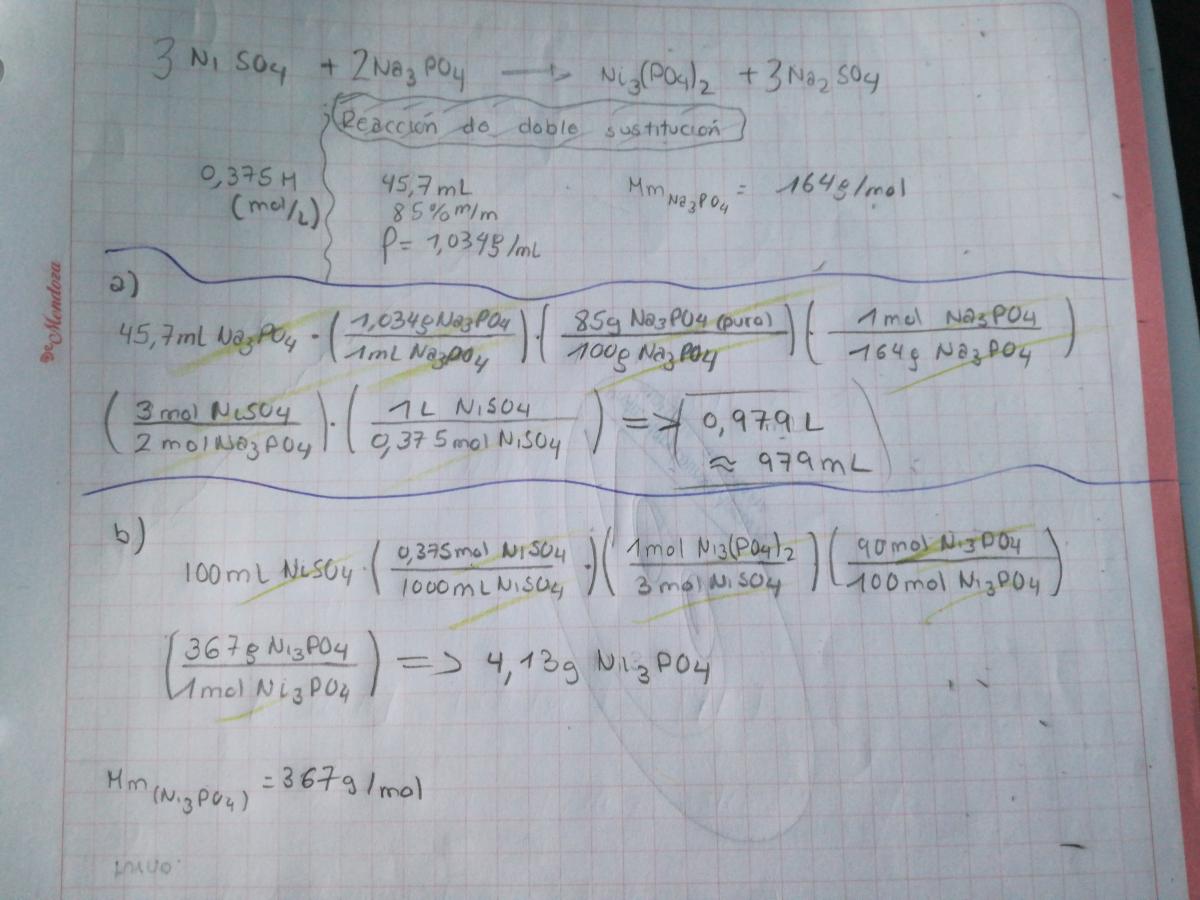 3 Ni SO4 + 2Na3PO4 → Ni3(PO4)2 + 3Na2SO4
Reacción de doble sustitución
0,375 M
(mol/L)
45,7mL
85% m/m
ρ = 1,034g/mL
Mm Na3PO4 = 164g/mol
De Mendoza
a)
45,7mL Na3PO4 · (1,034g Na3PO4 / 1mL Na3PO4) · (85g Na3PO4 (puro) / 100g Na3PO4) (· 1mol Na3PO4 / 164g Na3PO4)
(3mol NiSO4 / 2mol Na3PO4) · (1L NiSO4 / 0,375mol NiSO4) => 0,979 L
≈ 979mL
b)
100mL NiSO4 · (0,375mol NiSO4 / 1000mL NiSO4 ·) (1mol Ni3(PO4)2 / 3mol NiSO4) (90mol Ni3PO4 / 100mol Ni3PO4)
(367g Ni3PO4 / 1mol Ni3PO4) => 4,13g Ni3PO4
Mm (Ni3PO4) = 367g/mol